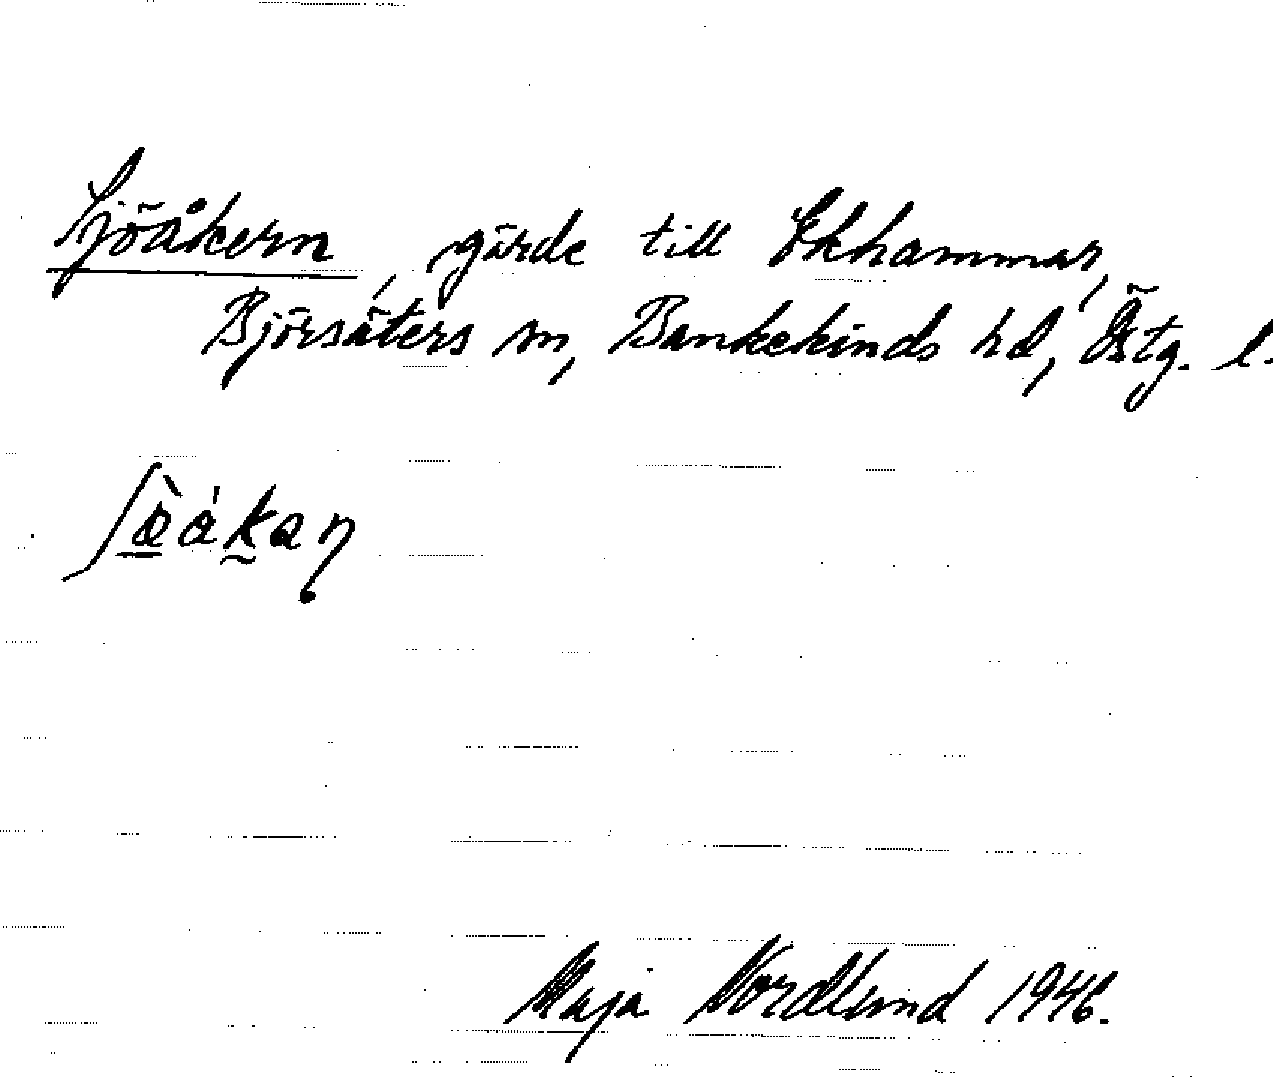 Sjöåkern, gärde till Ekhammar,
Björsäters sn, Bankekinds hd, Östg. l.
Maja Nordlund 1946.